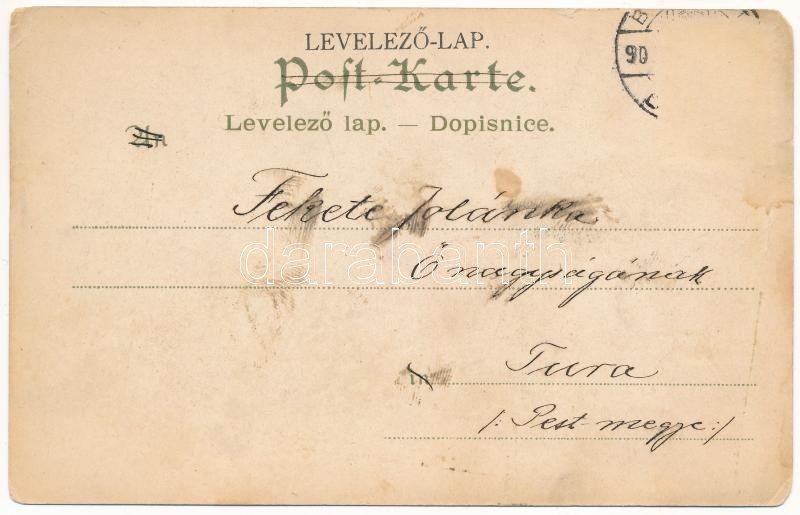 LEVELEZŐ-LAP.
Post-Karte.
Levelező lap. — Dopisnice.
An
Fekete Jolánka
Őnagyságának
in Tura
/: Pest-megye :/
90
darabanth